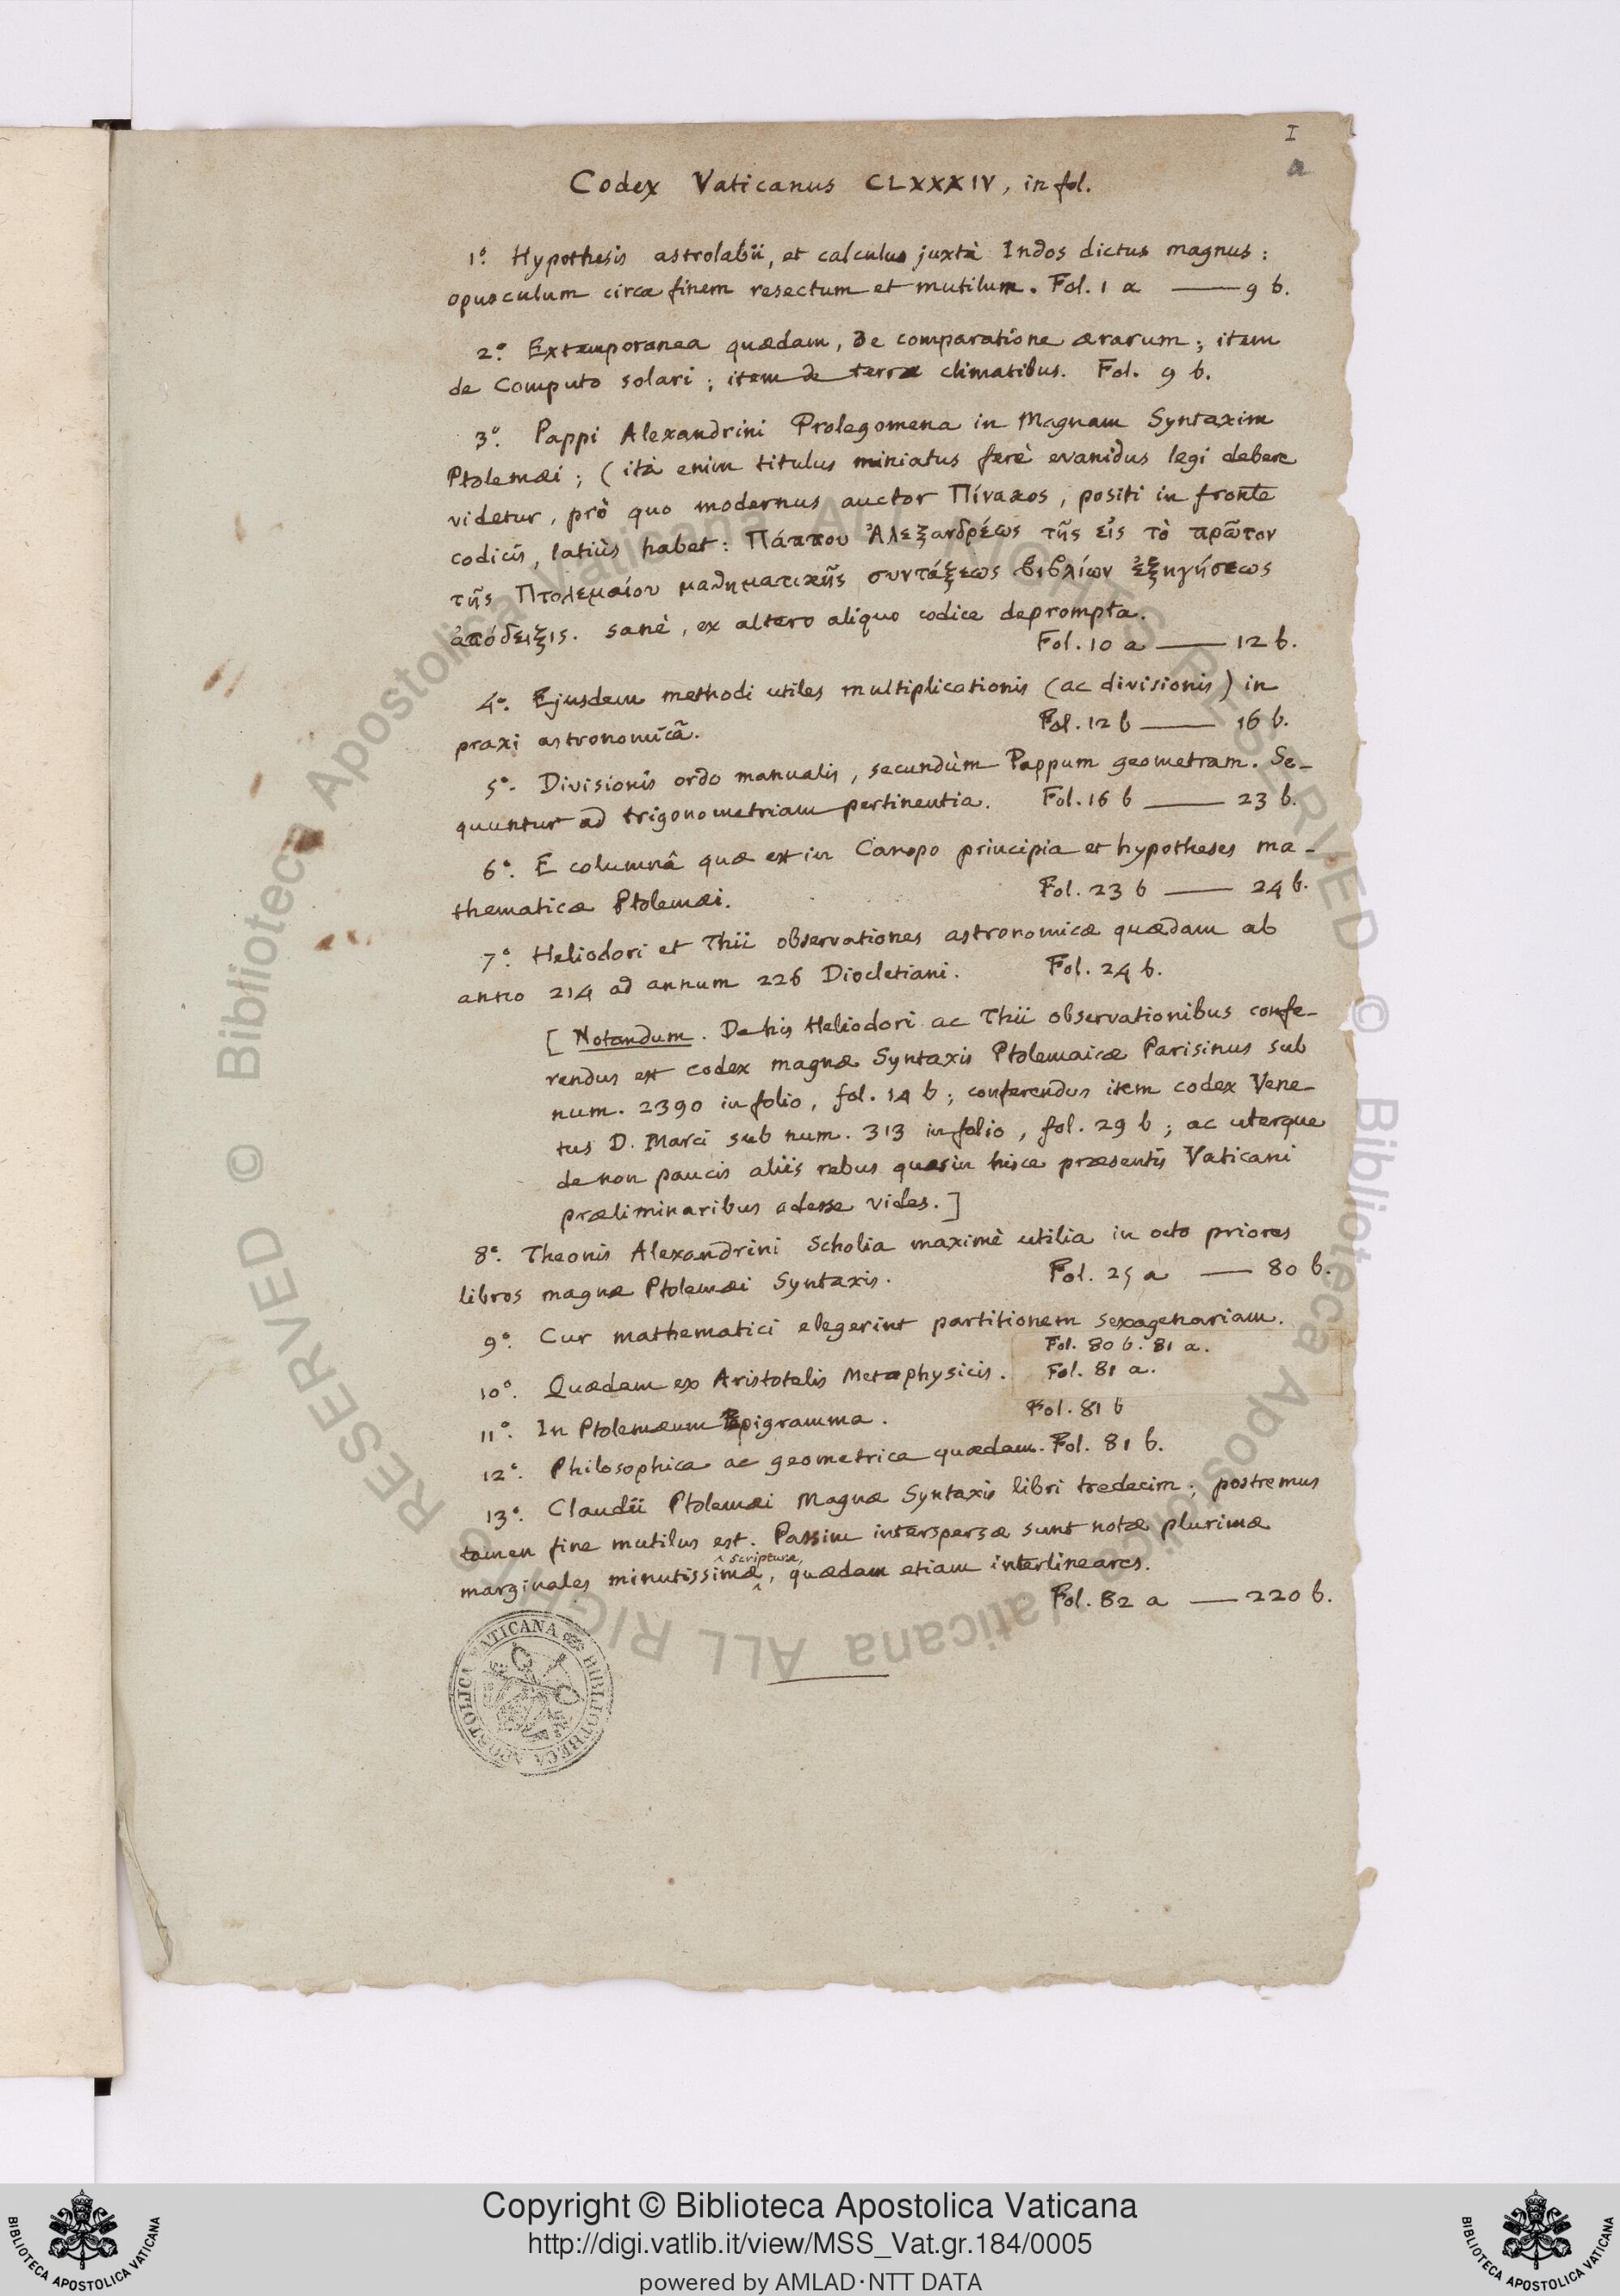 I
a
Codex Vaticanus CLXXXIV, in fol.
1.° Hypothesis astrolabii, et calculus juxtà Indos dictus magnus:
opusculum circa finem resectum et mutilum. Fol. 1 a — 9 b.
2.° Extemporanea quædam, de comparatione ærarum; item
de Computo solari; item de terræ climatibus. Fol. 9 b.
3.° Pappi Alexandrini Prolegomena in Magnam Syntaxim
Ptolemæi; (ità enim titulus miniatus ferè evanidus legi debere
videtur, prò quo modernus auctor Πίνακος, positi in fronte
codicis, latiùs habet: Πάππου Ἀλεξανδρέως τῆς εἰς τὸ πρῶτον
τῆς Πτολεμαίου μαθηματικῆς συντάξεως βιβλίων ἐξηγήσεως
ἀπόδειξις. sanè, ex altero aliquo codice deprompta.
Fol. 10 a — 12 b.
4.° Ejusdem methodi utiles multiplicationis (ac divisionis) in
praxi astronomicâ. Fol. 12 b — 16 b.
5.° Divisionis ordo manualis, secundùm Pappum geometram. Se-
quuntur ad trigonometriam pertinentia. Fol. 16 b — 23 b.
6.° E columnâ quæ est in Canopo principia et hypotheses ma-
thematicæ Ptolemæi. Fol. 23 b — 24 b.
7.° Heliodori et Thii observationes astronomicæ quædam ab
anno 214 ad annum 226 Diocletiani. Fol. 24 b.
[ Notandum. De his Heliodori ac Thii observationibus confe-
rendus est codex magnæ Syntaxis Ptolemaicæ Parisinus sub
num. 2390 in folio, fol. 14 b; conferendus item codex Vene-
tus D. Marci sub num. 313 in folio, fol. 29 b; ac uterque
de non paucis aliis rebus quas in hisce præsentis Vaticani
præliminaribus adesse vides. ]
8.° Theonis Alexandrini Scholia maximè utilia in octo priores
libros magnæ Ptolemæi Syntaxis. Fol. 25 a — 80 b.
9.° Cur mathematici elegerint partitionem sexagenariam.
Fol. 80 b. 81 a.
10.° Quædam ex Aristotelis Metaphysicis. Fol. 81 a.
11.° In Ptolemæum Epigramma. Fol. 81 b
12.° Philosophica ac geometrica quædam. Fol. 81 b.
13.° Claudii Ptolemæi Magnæ Syntaxis libri tredecim; postremus
tamen fine mutilus est. Passim interspersæ sunt notæ plurimæ
marginales minutissimæ scripturæ, quædam etiam interlineares.
Fol. 82 a — 220 b.
BIBLIOTHECA APOSTOLICA VATICANA
© Biblioteca Apostolica Vaticana ALL RIGHTS RESERVED © Biblioteca Apostolica Vaticana ALL RIGHTS RESERVED
BIBLIOTECA APOSTOLICA VATICANA
Copyright © Biblioteca Apostolica Vaticana
http://digi.vatlib.it/view/MSS_Vat.gr.184/0005
powered by AMLAD·NTT DATA
BIBLIOTECA APOSTOLICA VATICANA